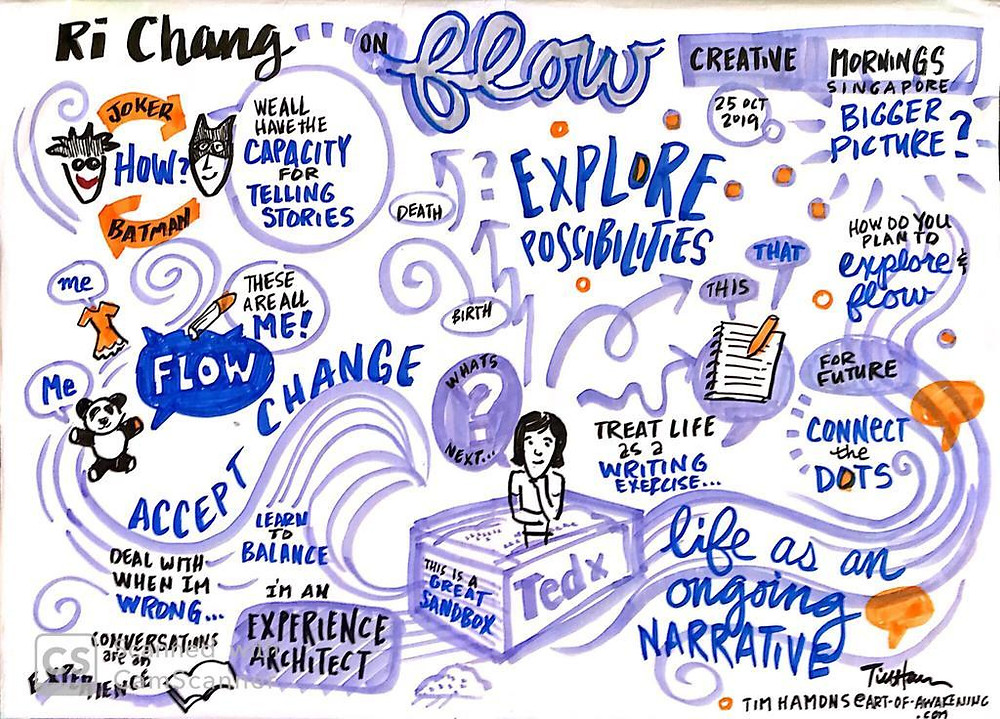 Ri Chang
ON
flow
CREATIVE MORNINGS
SINGAPORE
25 OCT
2019
BIGGER
PICTURE?
JOKER
HOW?
BATMAN
WE ALL
HAVE THE
CAPACITY
FOR
TELLING
STORIES
EXPLORE
POSSIBILITIES
?
DEATH
BIRTH
HOW DO YOU
PLAN TO
explore &
flow
THAT
THIS
me
THESE
ARE ALL
ME!
FLOW
Me
ACCEPT
CHANGE
WHATS
?
NEXT...
FOR
FUTURE
CONNECT
the
DOTS
TREAT LIFE
as a
WRITING
EXERCISE...
LEARN
TO
BALANCE
DEAL WITH
WHEN IM
WRONG...
I'M AN
EXPERIENCE
ARCHITECT
THIS IS A
GREAT
SANDBOX
Tedx
life as an
ongoing
NARRATIVE
CONVERSATIONS
are an
CS
Scanned with
CamScanner
TIM HAMONS@ART-OF-AWAKENING
.com